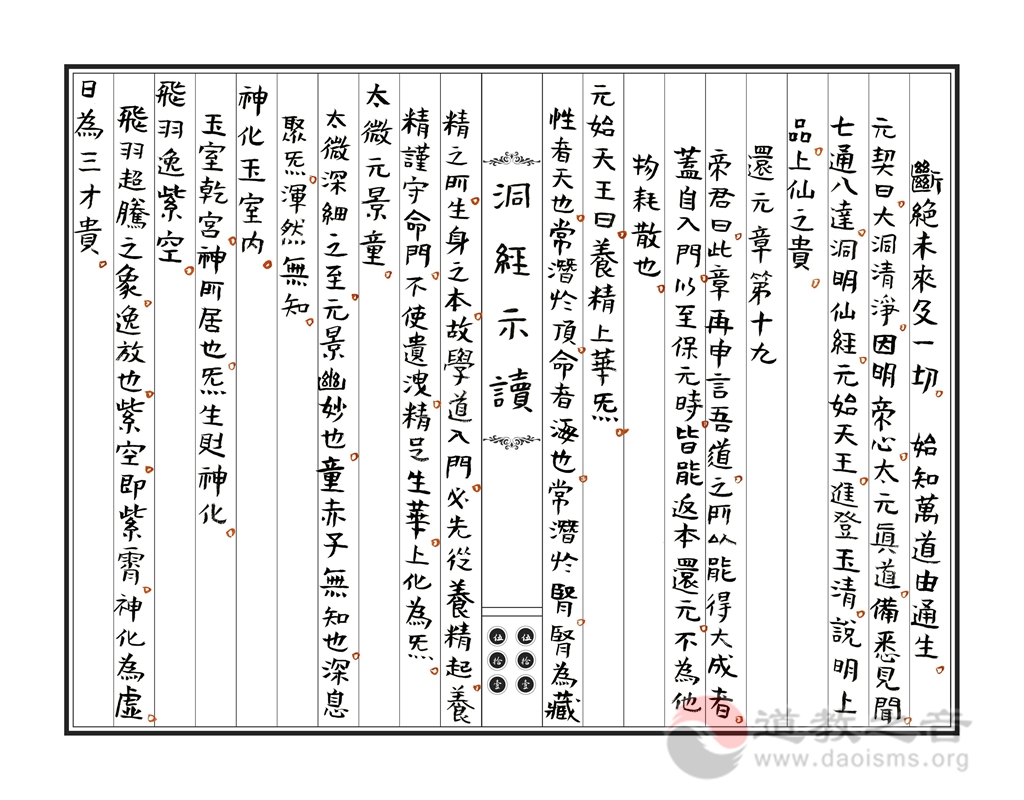 斷絕未來及一切。　始知萬道由通生。
元契曰。大洞清淨。因明帝心。太元眞道。備悉見聞。
七通八達。洞明仙經。元始天王。進登玉清。說明上
品。上仙之貴。
還元章第十九
帝君曰。此章再申言吾道之所以能得大成者。
蓋自入門以至保元時。皆能返本還元。不為他
物耗散也。
元始天王曰。養精上華炁。
性者天也。常潛於頂。命者海也。常潛於腎。腎為藏
洞經示讀
伍拾壹
伍拾壹
精之所。生身之本。故學道入門。必先從養精起。養
精謹守命門。不使遺洩。精足生華。上化為炁。
太微元景童。
太微深細之至。元景幽妙也。童赤子無知也。深息
聚炁。渾然無知。
神化玉室內。
玉室乾宮。神所居也。炁生則神化。
飛羽逸紫空。
飛羽超騰之象。逸放也。紫空。即紫霄。神化為虛。
日為三才貴。
道教之音
www.daoisms.org